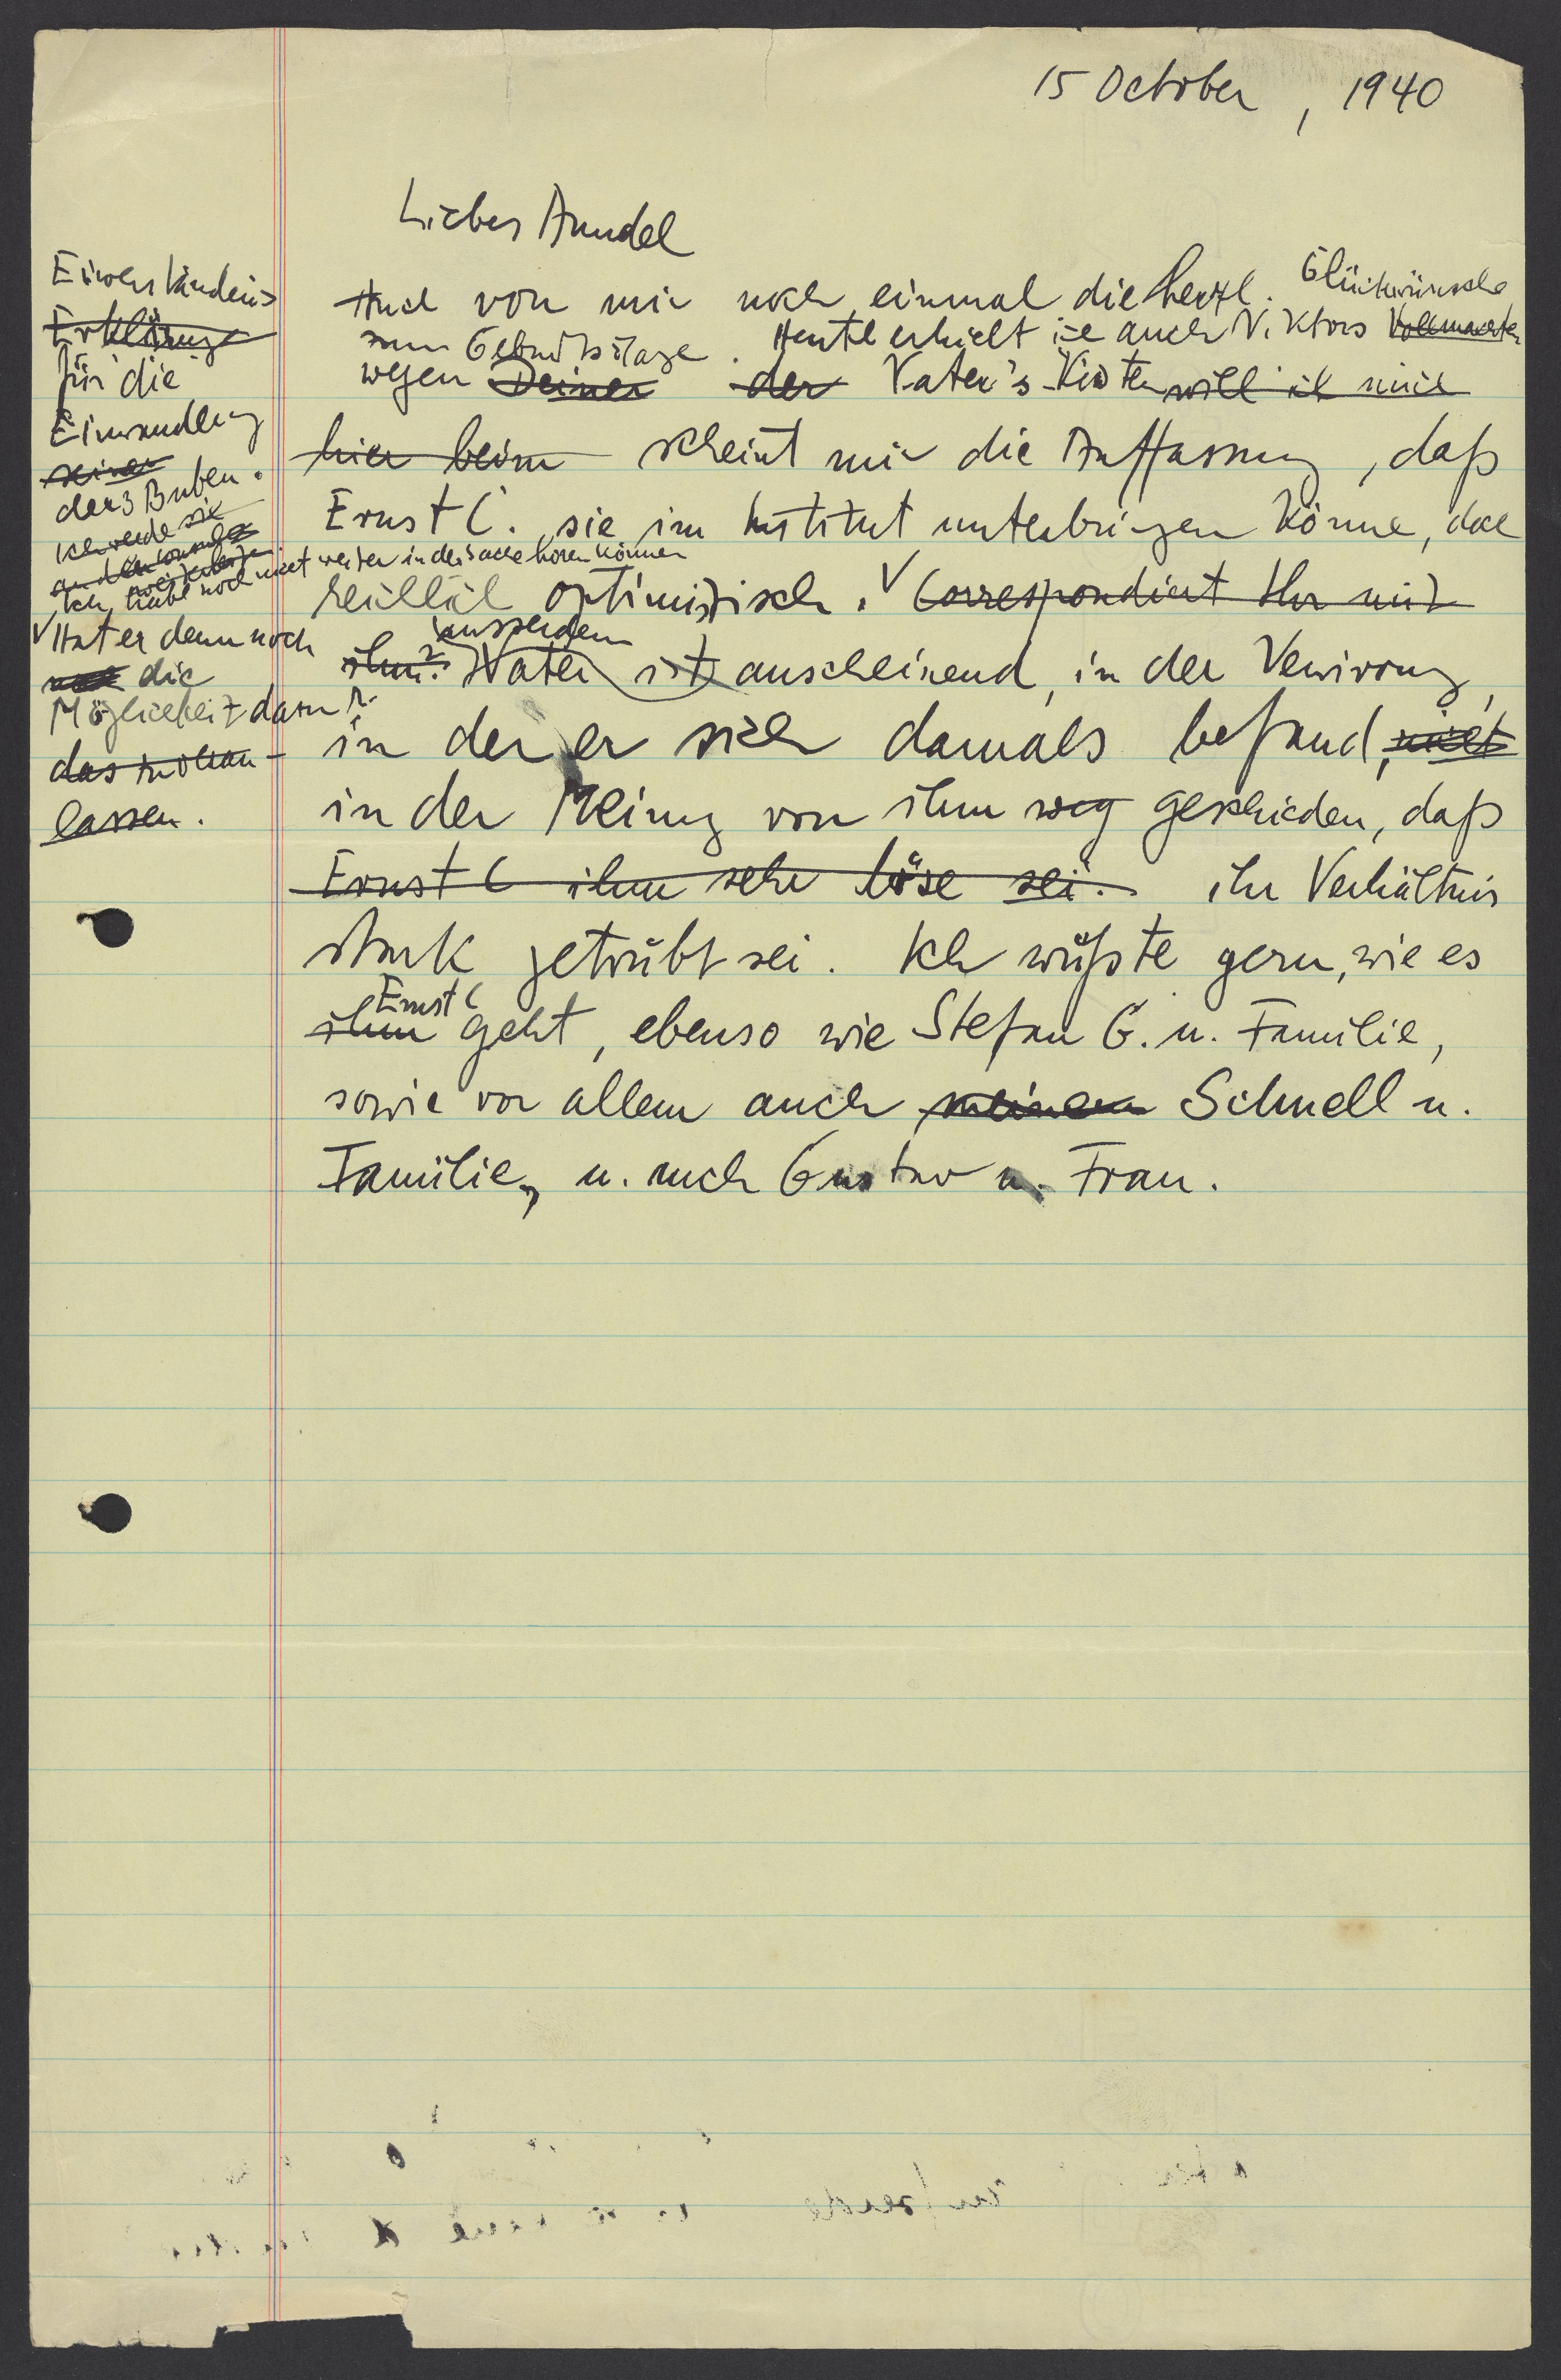 15 October, 1940
Liebes Anndel
Auch von mir noch einmal die herzl. Glückwünsche
zum Geburtstage. Heute erhielt ich auch Viktors Vollmachten
wegen Deiner der Vater's Kisten will ich mich
hier beim scheint mir die Auffassung, daß
Ernst C. sie im Institut unterbringen könne, doch
reichlich optimistisch. V Correspondiert Ihr mit
ihm? Vater ist ausserdem anscheinend, in der Verwirrung,
in der er sich damals befand, nicht
in der Meinung von ihm weg geschieden, daß
Ernst C ihm sehr böse sei. ihr Verhältnis
stark getrübt sei. Ich wüßte gern, wie es
ihm Ernst C geht, ebenso wie Stefan G. u. Familie,
sowie vor allem auch meinem Schnell u.
Familie, u. auch Gustav u. Frau.
Einverständnis
Erklärung
für die
Einwandlung
seiner
der 3 Buben.
Ich werde sie
an den
Ich habe noch nicht weiter in der Sache hören können
V Hat er denn noch
die
Möglichkeit dazu?
das
lassen.